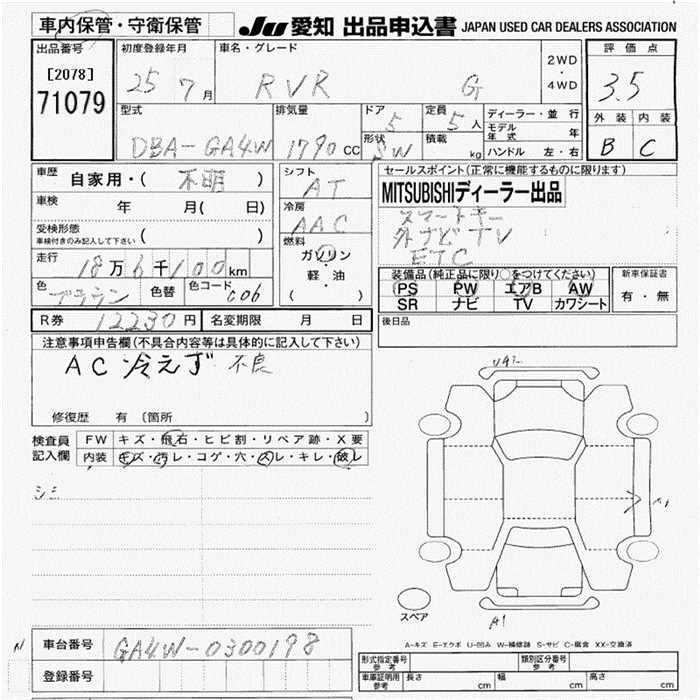 車内保管・守衛保管
JU 愛知 出品申込書 JAPAN USED CAR DEALERS ASSOCIATION
出品番号 初度登録年月 車名・グレード 評価点
[2078] 71079 25 7月 RVR G 2WD・4WD 3.5
型式 排気量 ドア 定員 ディーラー・並行 外装 内装
DBA-GA4W 1790 CC 5 5人 モデル年式 年 B C
形状 SW 積載 kg ハンドル 左・右
車歴 自家用・( 不明 ) シフト AT セールスポイント(正常に機能するものに限ります)
車検 年 月( 日) 冷房 AAC MITSUBISHIディーラー出品
スマートキー
外ナビ TV
ETC
受検形態 車検付きのみ記入して下さい ( ) 燃料 ガソリン 軽・油 ( )
走行 18万6千100km
色 ブラウン 色替 色コード C06
装備品(純正品に限り○をつけてください) 新車保証書
PS PW エアB AW 有・無
SR ナビ TV カワシート
R券 12230円 名変期限 月 日 後日品
注意事項申告欄(不具合内容等は具体的に記入して下さい)
AC 冷えず 不良
修復歴 有 (箇所
検査員記入欄 FW キズ・飛石・ヒビ割・リペア跡・X要
内装 キズ・汚レ・コゲ・穴・スレ・キレ・破レ
シミ
A1
スペア A1
A-キズ E-エクボ U-凹み W-補修跡 S-サビ C-腐食 XX-交換済
車台番号 GA4W-0300198
登録番号
形式指定番号 参考 類別区分番号 参考
車庫証明用 参考 長さ cm 幅 cm 高さ cm